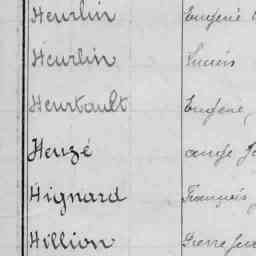 Heurlin Eugène
Heurlin Lucien
Heurtault Eugène,
Heuzé ange
Hignard François
Hillion Pierre